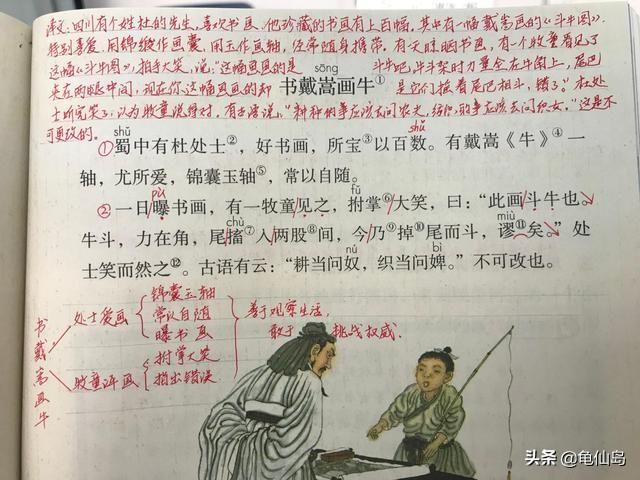 译文：四川有个姓杜的先生，喜欢书画，他珍藏的书画有上百幅，其中有一幅戴嵩画的《斗牛图》，
特别喜爱，用锦缎作画囊，用玉作画轴，经常随身携带。有一天晒晾书画，有一个牧童看见了
这幅《斗牛图》，拍手大笑，说：“这幅画画的是 斗牛吧，斗牛架时力量全在牛角上，尾巴
sōng
夹在两腿中间，现在你这幅画画的却 书戴嵩画牛① 是它们摇着尾巴相斗，错了。”杜处
士听完笑了，认为牧童说得对，有古语说，“耕种的事应该去问农夫，纺织的事应该去问织女。”这是不
可更改的。
shǔ shǔ
①蜀中有杜处士②，好书画，所宝③以百数。有戴嵩《牛》④一
轴，尤所爱，锦囊玉轴⑤，常以自随。
pù fǔ
②一日曝书画，有一牧童见之，拊掌⑥大笑，曰：“此画斗牛也。
chù miù
牛斗，力在角，尾搐⑦入两股⑧间，今乃⑨掉⑩尾而斗，谬⑪矣。”处
nú bì
士笑而然之⑫。古语有云：“耕当问奴，织当问婢。”不可改也。
书戴嵩画牛
处士爱画
锦囊玉轴
常以自随
曝书画
牧童评画
拊掌大笑
指出错误
善于观察生活，
敢于 挑战权威.
头条 @龟仙岛